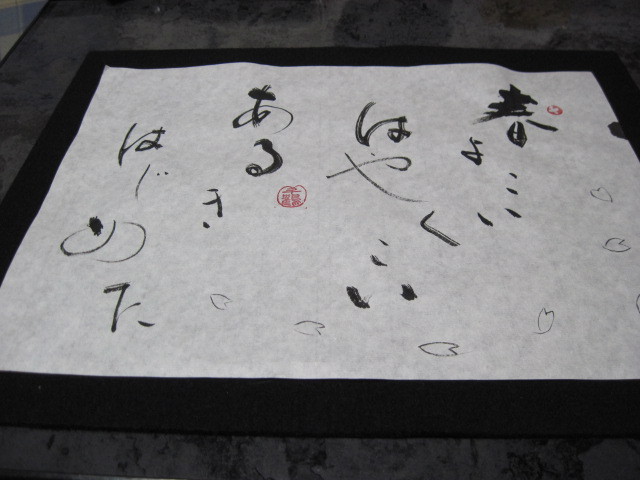 春よこい
はやくこい
あるき
はじめた